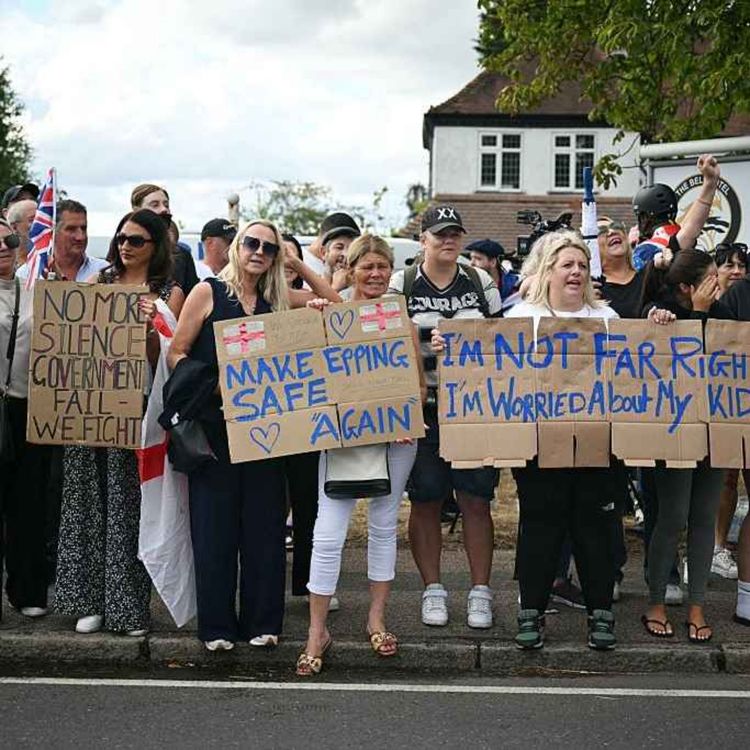 NO MORE
SILENCE
GOVERNMENT
FAIL -
WE FIGHT
MAKE EPPING
SAFE
"AGAIN"
XX
COURAGE
I'm NOT FAR RIGH
I'm WORRIED About My KID
THE BELL HOTEL